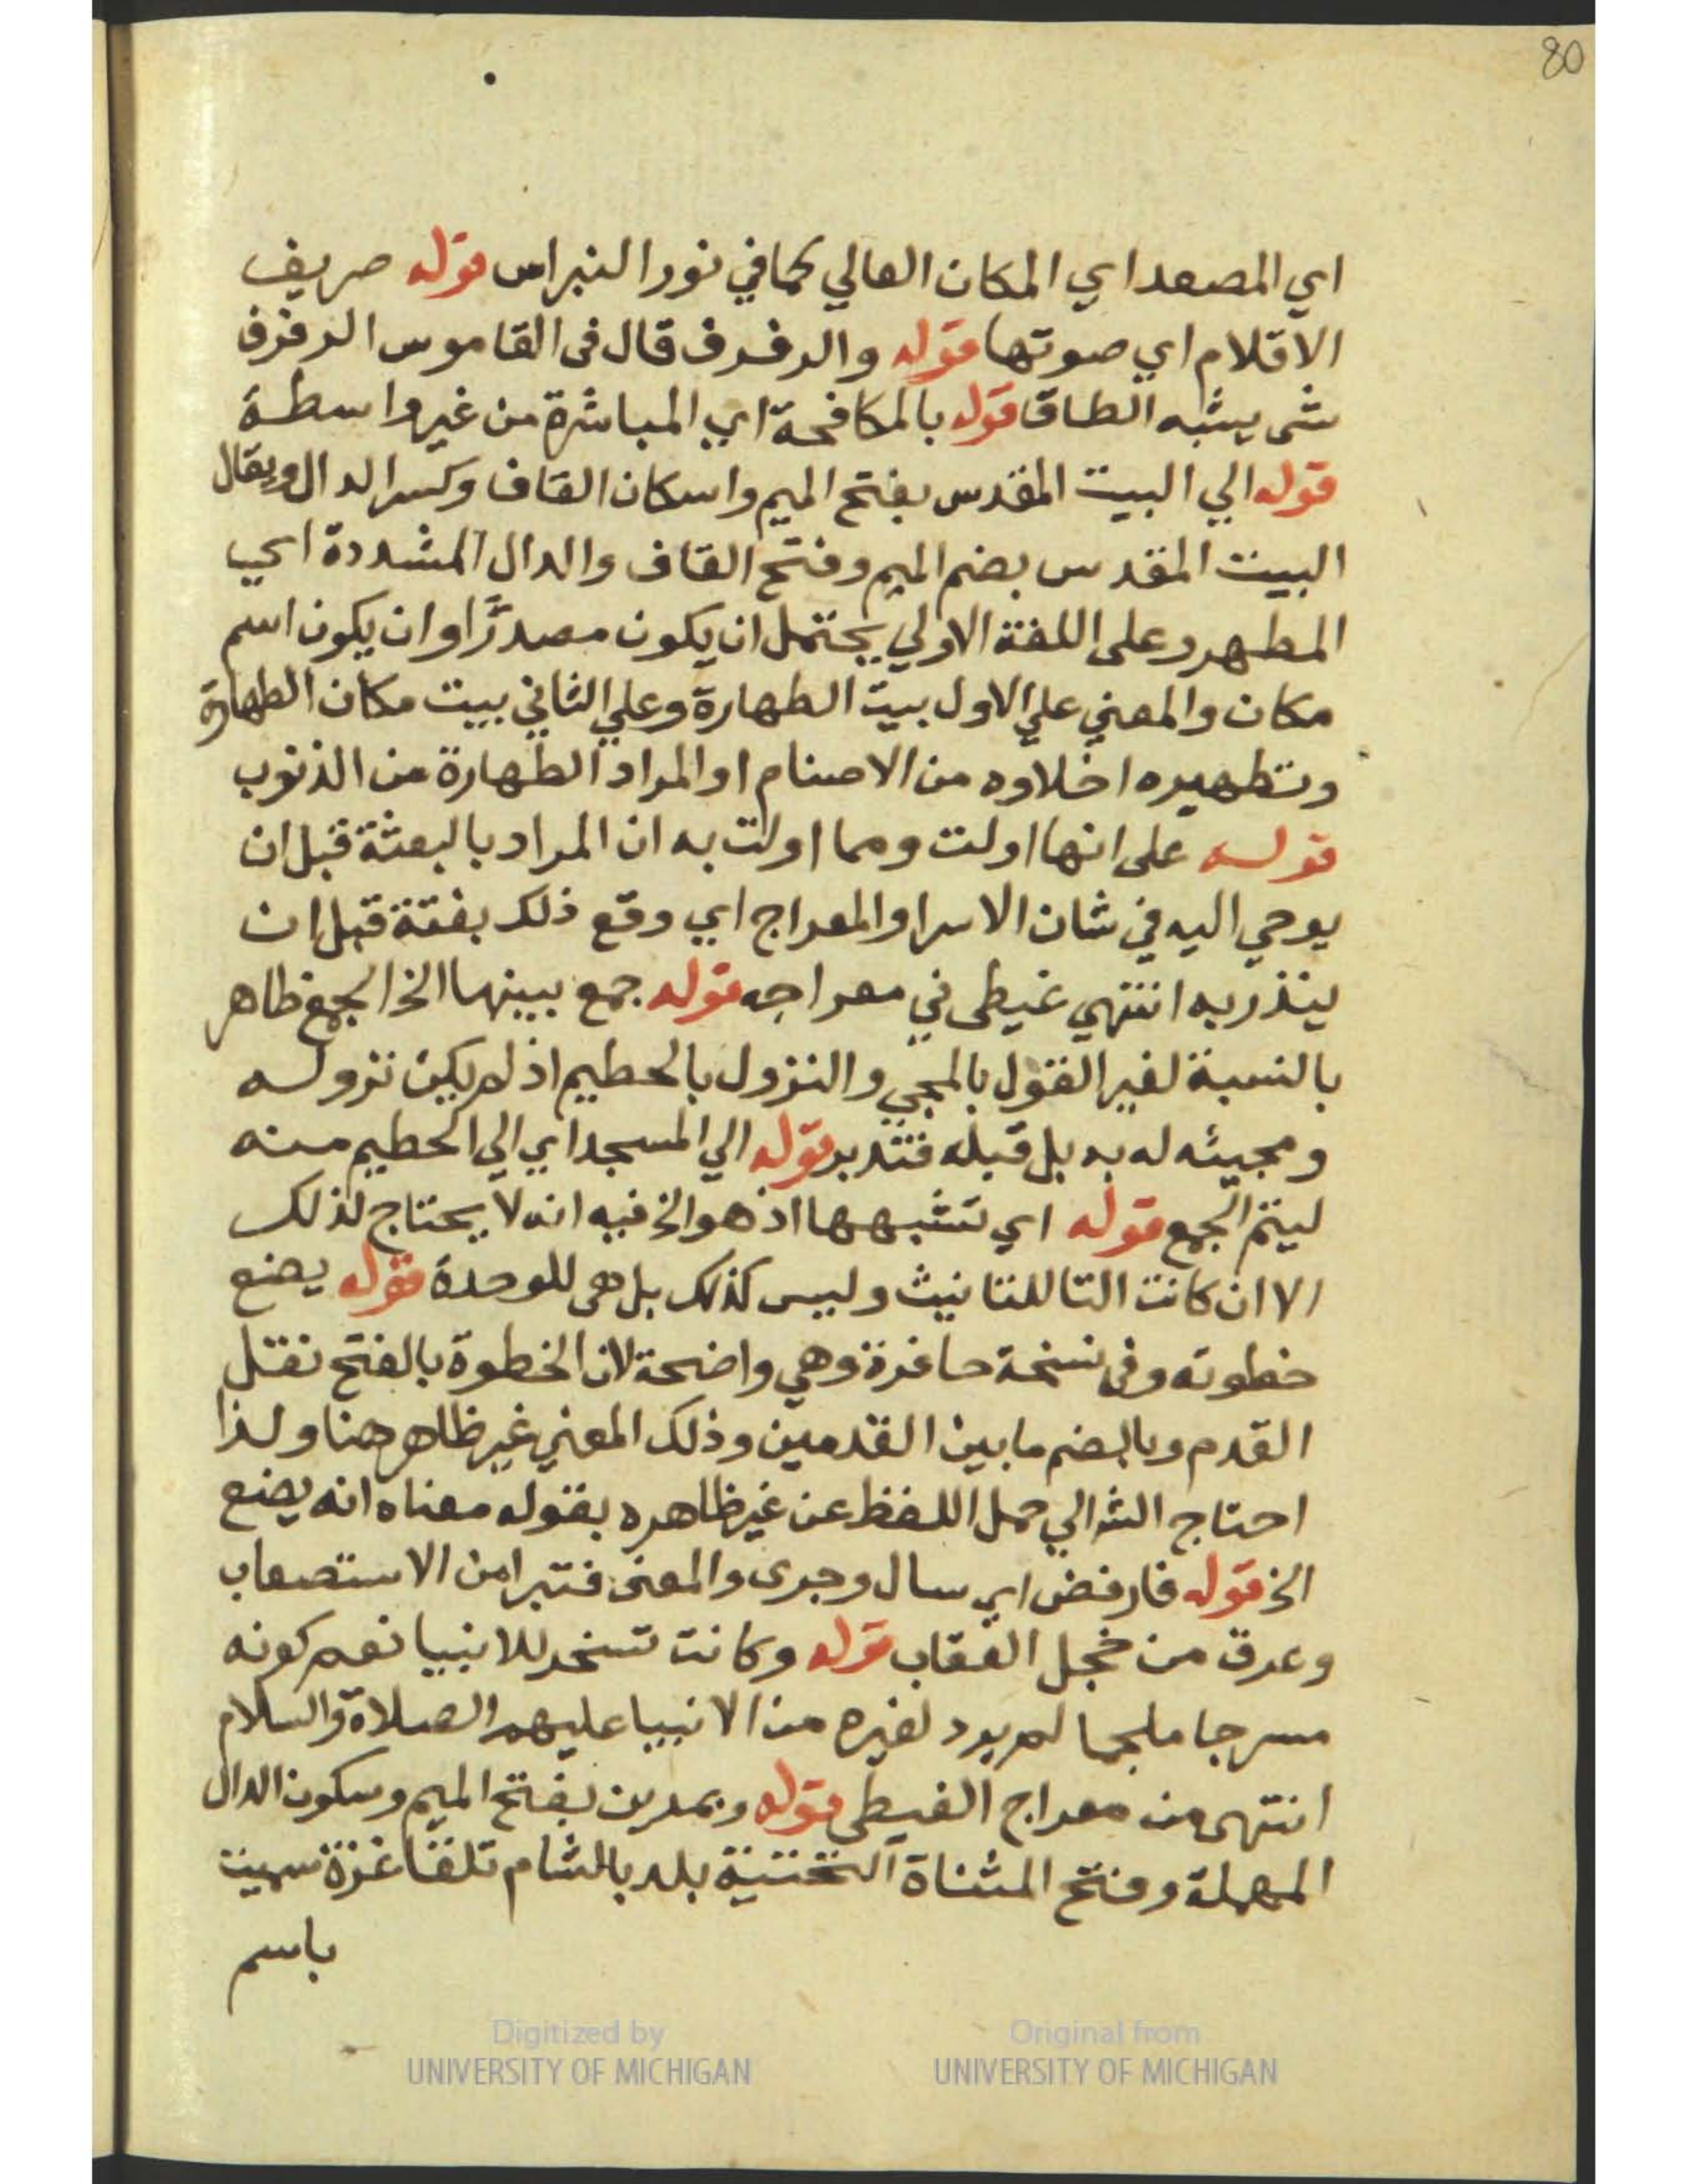 80
اي المصعد اي المكان العالي كما في نور النبراس قوله صريف
الاقلام اي صوتها قوله والرفرف قال في القاموس الرفرف
شي يشبه الطاق قوله بالمكافحة اي المباشرة من غير واسطة
قوله الي البيت المقدس بفتح الميم واسكان القاف وكسر الدال ويقال
البيت المقدس بضم الميم وفتح القاف والدال المشددة اي
المطهر وعلى اللغة الاولي يحتمل ان يكون مصدرًا وان يكون اسم
مكان والمعني علي الاول بيت الطهارة وعلي الثاني بيت مكان الطهارة
وتطهيره اخلاوه من الاصنام او المراد الطهارة من الذنوب
قوله على انها اولت ومما اولت به ان المراد بالبعثة قبل ان
يوحي اليه في شان الاسرا والمعراج اي وقع ذلك بغتة قبل ان
ينذر به انتهي غيطى في معراجه قوله جمع بينها الخ الجمع ظاهر
بالنسبة لغير القول بالمجي والنزول بالحطيم اذ لم يكن نزوله
ومجيئه له به بل قبله فتدبر قوله الي المسجد اي الي الحطيم منه
ليتم الجمع قوله اي تشبهها اذ هو الخ فيه انه لا يحتاج لذلك
الا ان كانت التا للتانيث وليس كذلك بل هى للوحدة قوله يضع
خطوته وفى نسخة حافرة وهي واضحة لان الخطوة بالفتح نقل
القدم وبالضم ما بين القدمين وذلك المعني غير ظاهر هنا ولذا
احتاج الش الي حمل اللفظ عن غير ظاهره بقوله معناه انه يضع
الخ قوله فارفض اي سال وجرى والمعنى فتبرا من الاستصعاب
وعرق من خجل العقاب قوله وكانت تسخر للانبيا نعم كونه
مسرجا ملجما لم يرد لغيره من الانبيا عليهم الصلاة والسلام
انتهى من معراج الغيطى قوله وبمدين بفتح الميم وسكون الدال
المهملة وفتح المثناة التحتية بلد بالشام تلقا غزة سميت
باسم
Digitized by
UNIVERSITY OF MICHIGAN
Original from
UNIVERSITY OF MICHIGAN